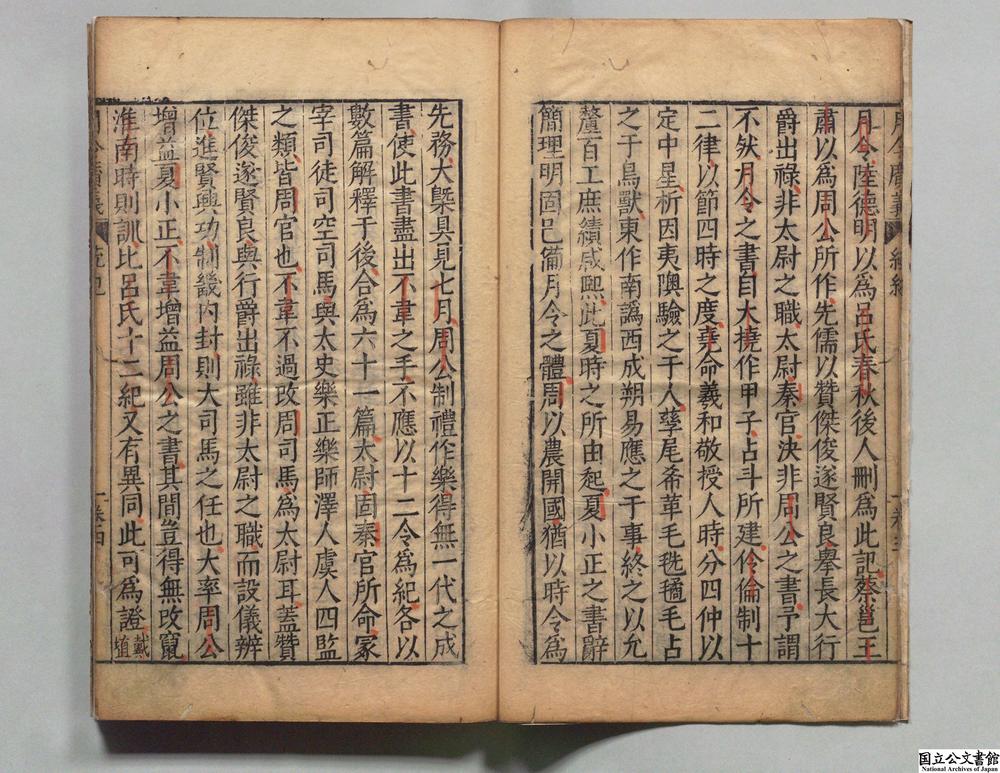 月令陸德明以爲呂氏春秋後人刪爲此記蔡邕王
肅以爲周公所作先儒以贊傑俊遂賢良舉長大行
爵出祿非太尉之職太尉秦官決非周公之書予謂
不然月令之書自大撓作甲子占斗所建伶倫制十
二律以節四時之度堯命羲和敬授人時分四仲以
定中星析因夷隩驗之于人孳尾希革毛毨氄毛占
之于鳥獸東作南譌西成朔易應之于事終之以允
釐百工庶績咸熙此夏時之所由起夏小正之書辭
簡理明固已備月令之體周以農開國猶以時令爲
先務大槩具見七月周公制禮作樂得無一代之成
書使此書盡出不韋之手不應以十二令爲紀各以
數篇解釋于後合爲六十一篇太尉固秦官所命冢
宰司徒司空司馬與太史樂正樂師澤人虞人四監
之類皆周官也不韋不過改周司馬爲太尉耳蓋贊
傑俊遂賢良與行爵出祿雖非太尉之職而設儀辨
位進賢興功制畿内封則大司馬之任也大率周公
增益夏小正不韋增益周公之書其間豈得無改竄
淮南時則訓比呂氏十二紀又有異同此可爲證 戴埴
月令廣義
國立公文書館
National Archives of Japan